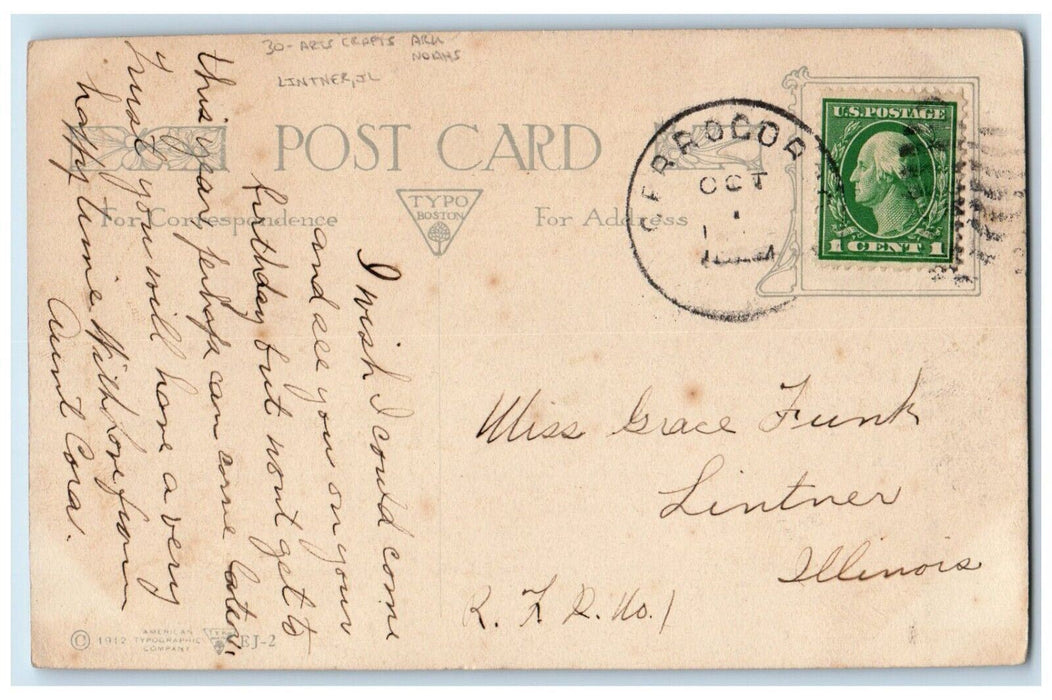 30 - ARTS CRAFTS ARK
NOAHS
LINTNER, IL
POST CARD
For Correspondence
TYPO
BOSTON
For Address
CERROGOR
OCT
1
U.S. POSTAGE
1 CENT 1
I wish I could come
and see you on your
birthday but wont get to
this year perhaps can come later.
Trust you will have a very
happy time With love from
Aunt Cora.
Miss Grace Funk
Lintner
Illinois
R. F. D. No. 1
© 1912 AMERICAN
TYPOGRAPHIC
COMPANY
EJ-2